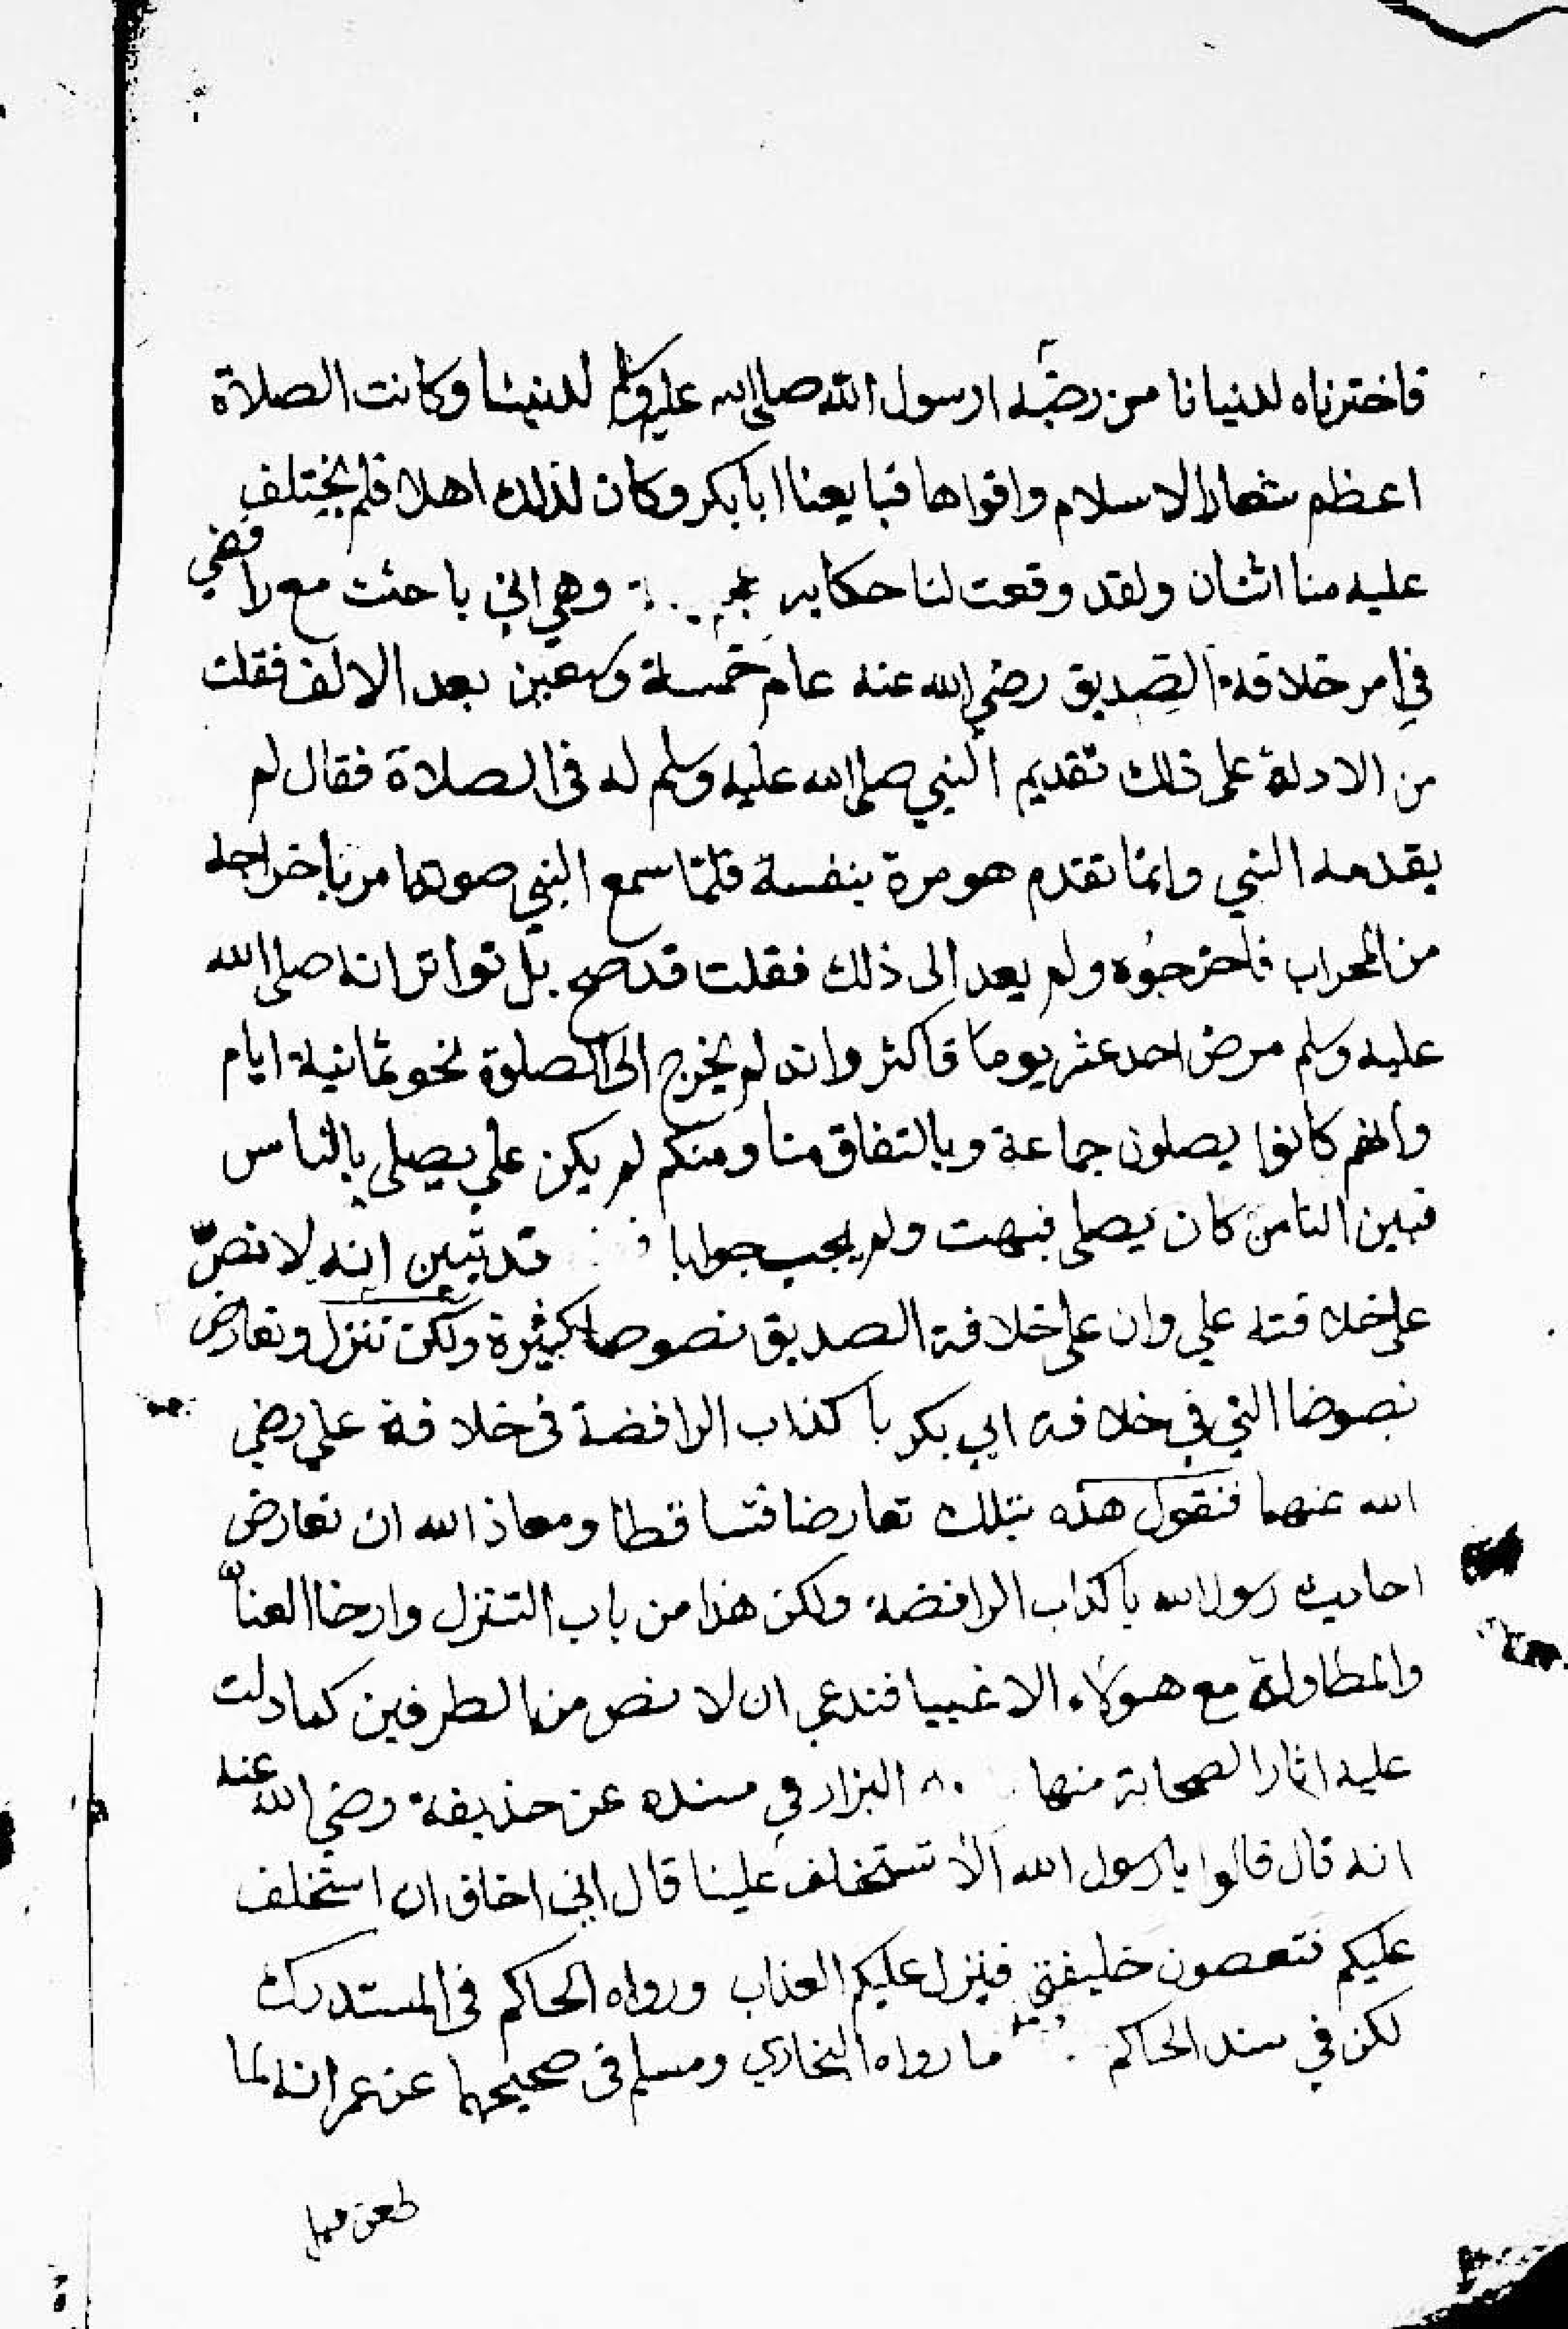 فاخترناه لدنيانا من رضيه رسول الله صلى الله عليه وسلم لديننا وكانت الصلاة
اعظم شعار الاسلام واقواها فبايعنا ابا بكر وكان لذلك اهلا فلم يختلف
عليه منا اثنان ولقد وقعت لنا حكاية وهي اني باحثت مع رافضي
في امر خلافة الصديق رضي الله عنه عام خمسة وسبعين بعد الالف فقلت
من الادلة على ذلك تقديم النبي صلى الله عليه وسلم له في الصلاة فقال لم
يقدمه النبي وانما تقدم هو مرة بنفسه فلمّا سمع النبي صوتها مر باخراجه
من المحراب فاخرجوه ولم يعد الى ذلك فقلت قد صح بل تواتر انه صلى الله
عليه وسلم مرض احد عشر يوما فاكثر وانه لم يخرج الى الصلوة نحو ثمانية ايام
وانهم كانوا يصلون جماعة وبالتفاق منا ومنكم لم يكن علي يصلي بالناس
فبين النا من كان يصلي فبهت ولم يجب جوابا قد تبين انه لا نصّ
على خلافته علي وان على خلافة الصديق نصوصا كثيرة ولكن نتنزل ونعارض
نصوصنا التي في خلافة ابي بكر باكذاب الرافضة في خلافة علي رضي
الله عنهما فنقول هذه بتلك تعارضا فتساقطا ومعاذ الله ان نعارض
احاديث رسول الله باكذاب الرافضة ولكن هذا من باب التنزل وارخا العنان
والمطاولة مع هولاء الاغبيا فندعي ان لا نص من الطرفين كما دلت
عليه اثار الصحابة منها البزار في مسنده عن حذيفة رضي الله عنه
انه قال قالوا يا رسول الله الا تستخلف علينا قال اني اخاف ان استخلف
عليكم فتعصون خليفتي فينزل عليكم العذاب ورواه الحاكم في المستدرك
لكن في سند الحاكم ما رواه البخاري ومسلم في صحيحهما عن عمر انه لما
طعن قيل